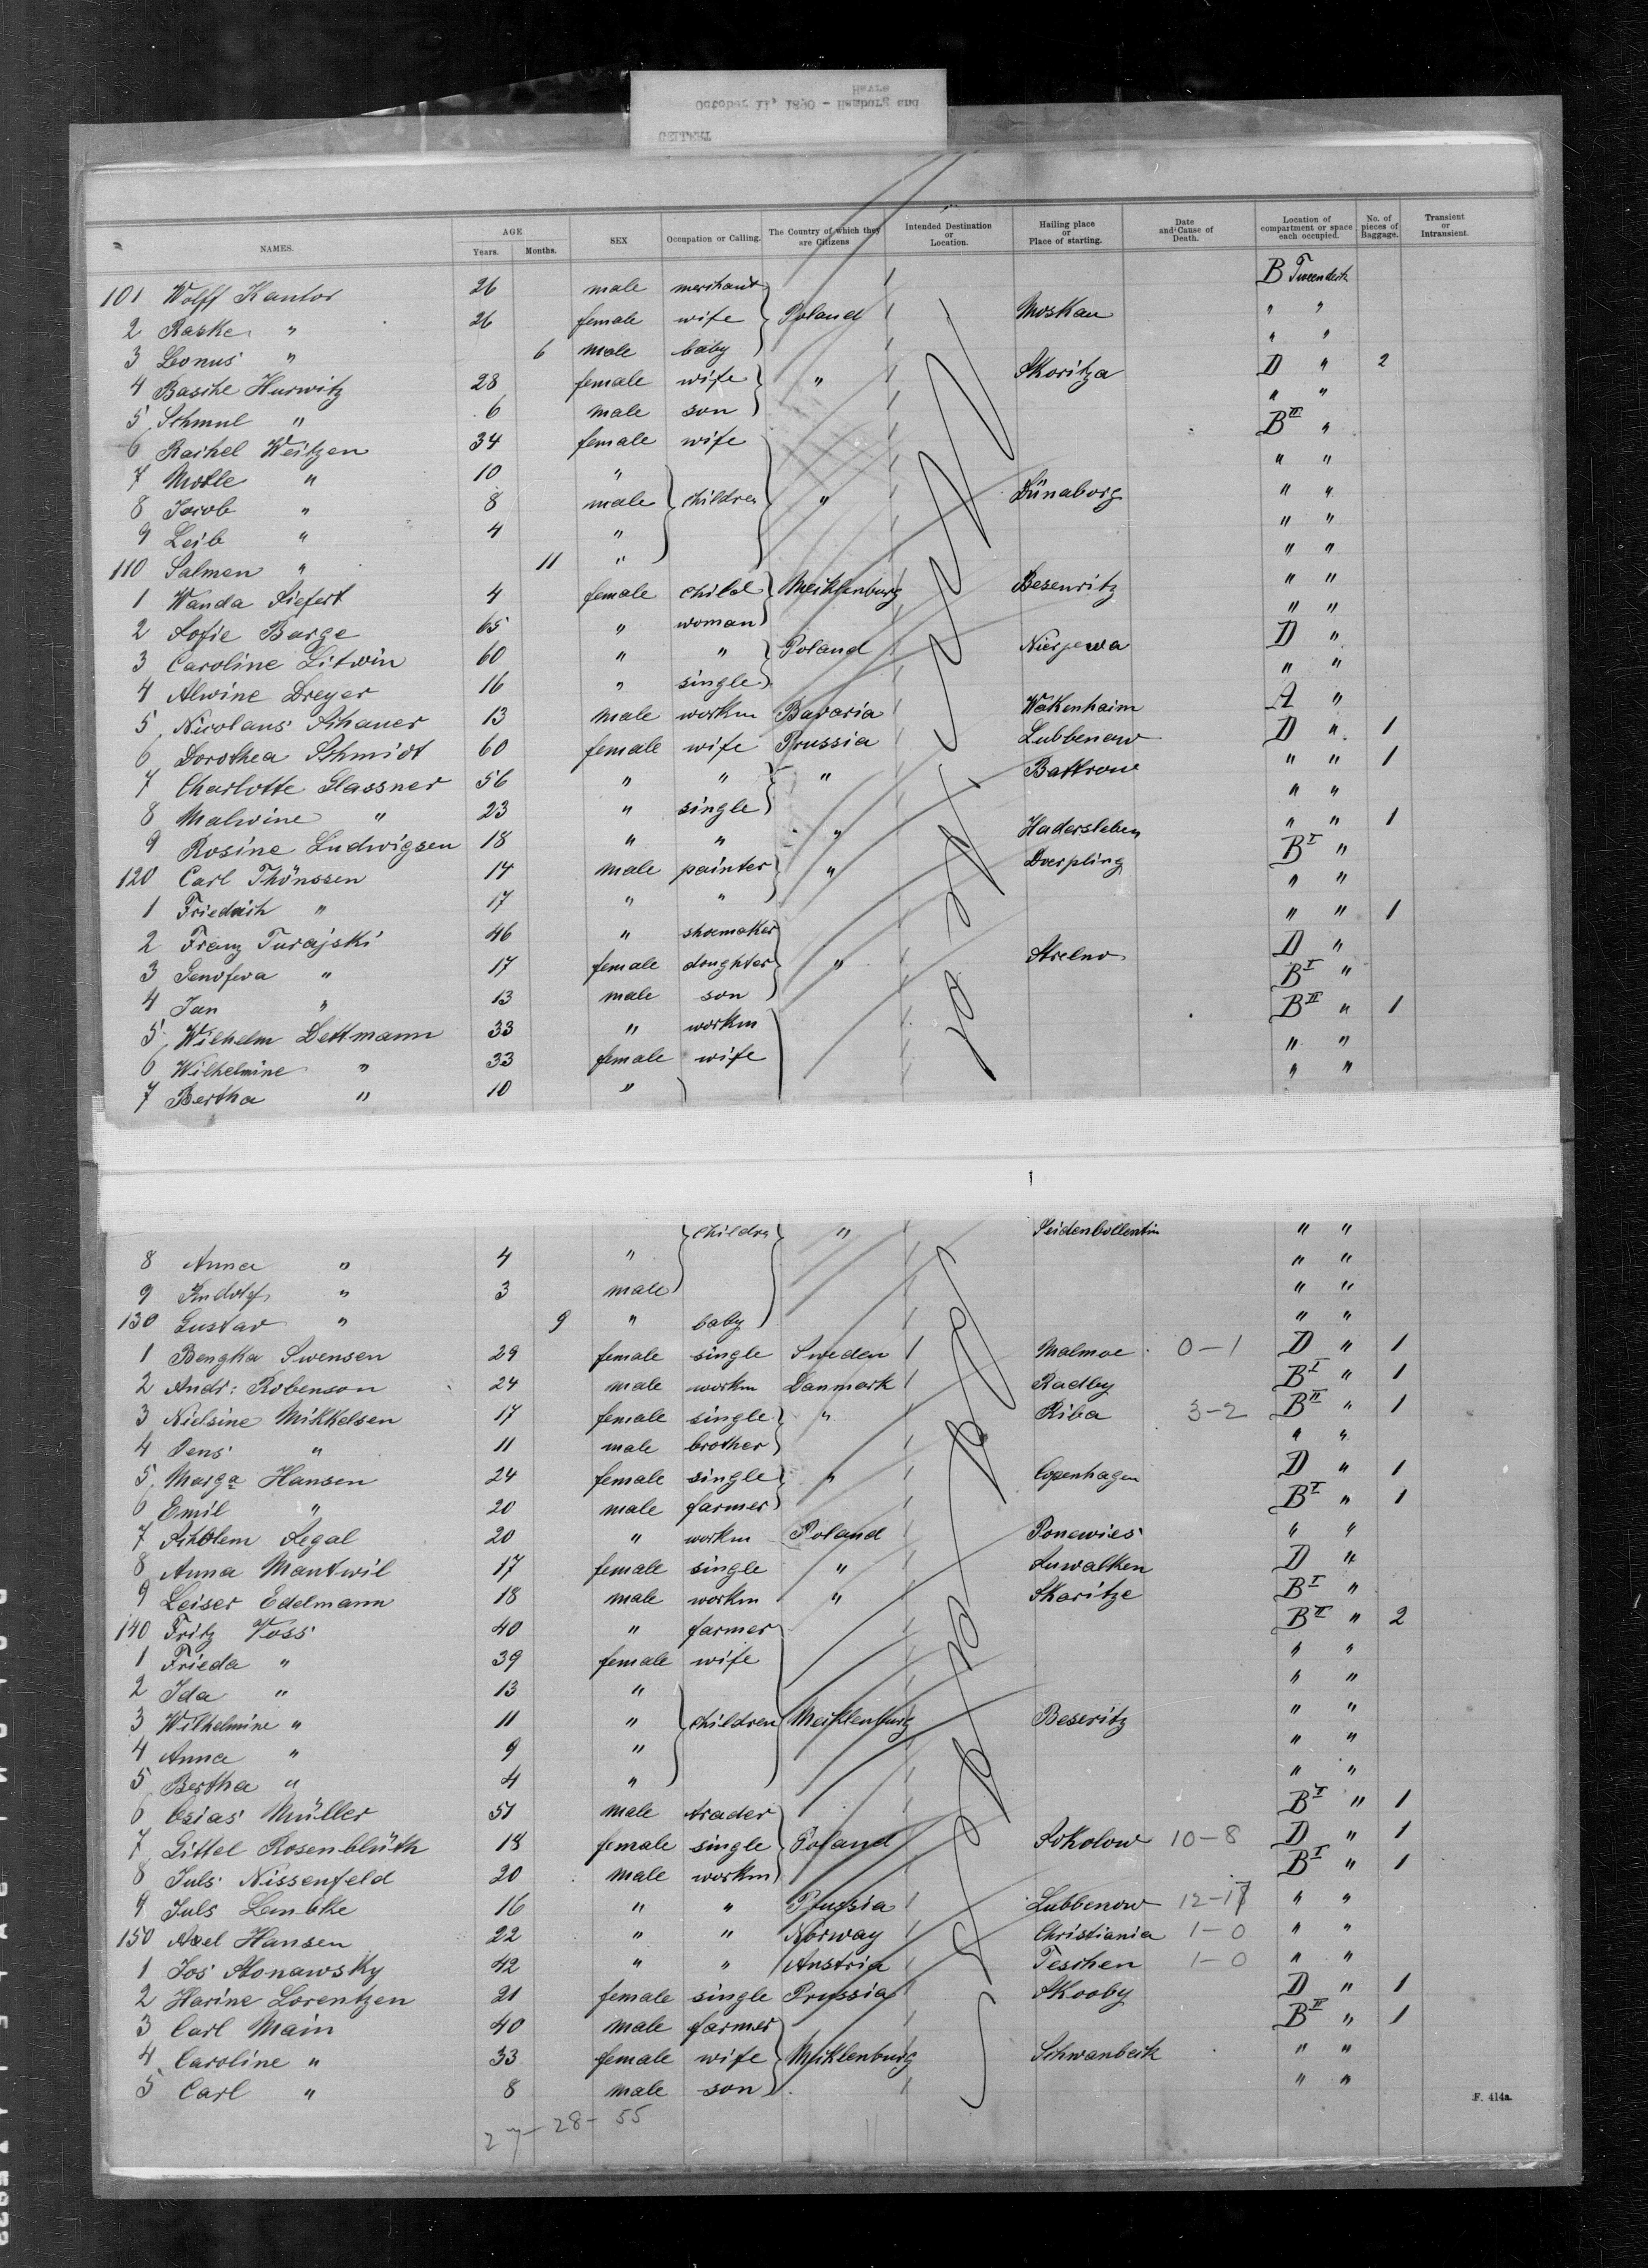 GELLERT
October 11, 1890 - Hamburg and
Havre
NAMES. AGE Years. Months. SEX Occupation or Calling. The Country of which they are Citizens Intended Destination or Location. Hailing place or Place of starting. Date and Cause of Death. Location of compartment or space each occupied. No. of pieces of Baggage. Transient or Intransient.
101 Wolff Kantor 26 male merchant B Tweendeck
2 Raske " 26 female wife Poland Moskau " "
3 Leonus " 6 male baby " "
4 Basche Hurwitz 28 female wife " Skoritza D " 2
5 Schmul " 6 male son " "
6 Rachel Weitzen 34 female wife B II "
7 Motle " 10 " " "
8 Jacob " 8 male children " Dünaborg " "
9 Leib " 4 " " "
110 Salmen " 11 " " "
1 Wanda Siefert 4 female child Mecklenburg Beseuritz " "
2 Sofie Barge 65 " woman " "
3 Caroline Litwin 60 " " Poland D "
4 Alwine Dreyer 16 " single " "
5 Nicolaus Schauer 13 male workm Bavaria Wakenhaim A "
6 Dorothea Schmidt 60 female wife Prussia Lubbenow D " 1
7 Charlotte Glassner 56 " " " " " 1
8 Malwine " 23 " single " "
9 Rosine Ludwigsen 18 " " " Hadersleben " " 1
120 Carl Thönssen 14 male painter " Doerpling B I "
1 Friedrich " 17 " " " "
2 Franz Turajski 46 " shoemaker " " 1
3 Genofeva " 17 female doughter " Strelno D "
4 Jan " 13 male son B I "
5 Wilhelm Dettmann 33 " workm B II " 1
6 Wilhelmine " 33 female wife " "
7 Bertha " 10 " " "
childrn " Seidenbollentin " "
8 Anna " 4 " " "
9 Rudolf " 3 male " "
130 Gustav " 9 " baby " "
1 Bengka Swensen 29 female single Sweden Malmoe 0-1 D " 1
2 Andr: Robenson 24 male workm Danmark Radby B I " 1
3 Nielsine Mikkelsen 17 female single " Riba 3-2 B II " 1
4 Jens " 11 male brother " "
5 Marga Hansen 24 female single " Copenhagen D " 1
6 Emil " 20 male farmer B I " 1
7 Scholem Segal 20 " workm Poland Ponewies " "
8 Anna Mantwil 17 female single " Suwalken D "
9 Leiser Edelmann 18 male workm " Skaritze B I "
140 Fritz Voss 40 " farmer B II " 2
1 Frieda " 39 female wife " "
2 Ida " 13 " " "
3 Wilhelmine " 11 " children Mecklenburg Beseritz " "
4 Anna " 9 " " "
5 Bertha " 4 " " "
6 Osias Müller 51 male trader B I " 1
7 Gittel Rosenblüth 18 female single Poland Sokolow 10-8 D " 1
8 Juls Nissenfeld 20 male workm B I " 1
9 Juls Lembke 16 " " Prussia Lubbenow 12-17 " "
150 Axel Hansen 22 " " Norway Christiania 1-0 " "
1 Jos Stonawsky 42 " " Austria Teschen 1-0 " "
2 Harine Lorentzen 21 female single Prussia Skooby D " 1
3 Carl Main 40 male farmer B II " 1
4 Caroline " 33 female wife Mecklenburg Schwanbeck " "
5 Carl " 8 male son " "
F. 414a.
27-28-55